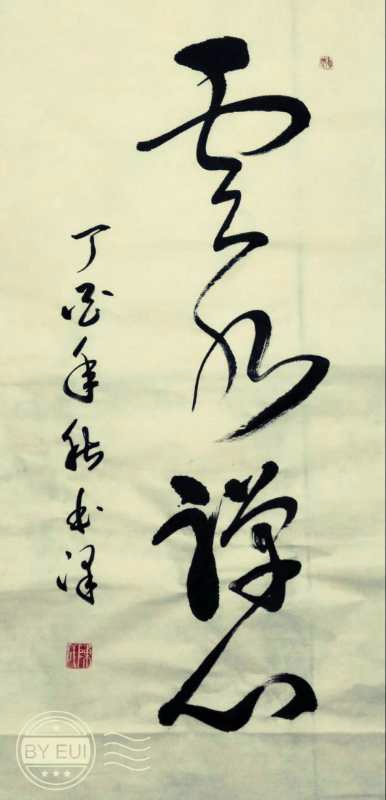 雲水禅心
丁酉年秋
BY EUI